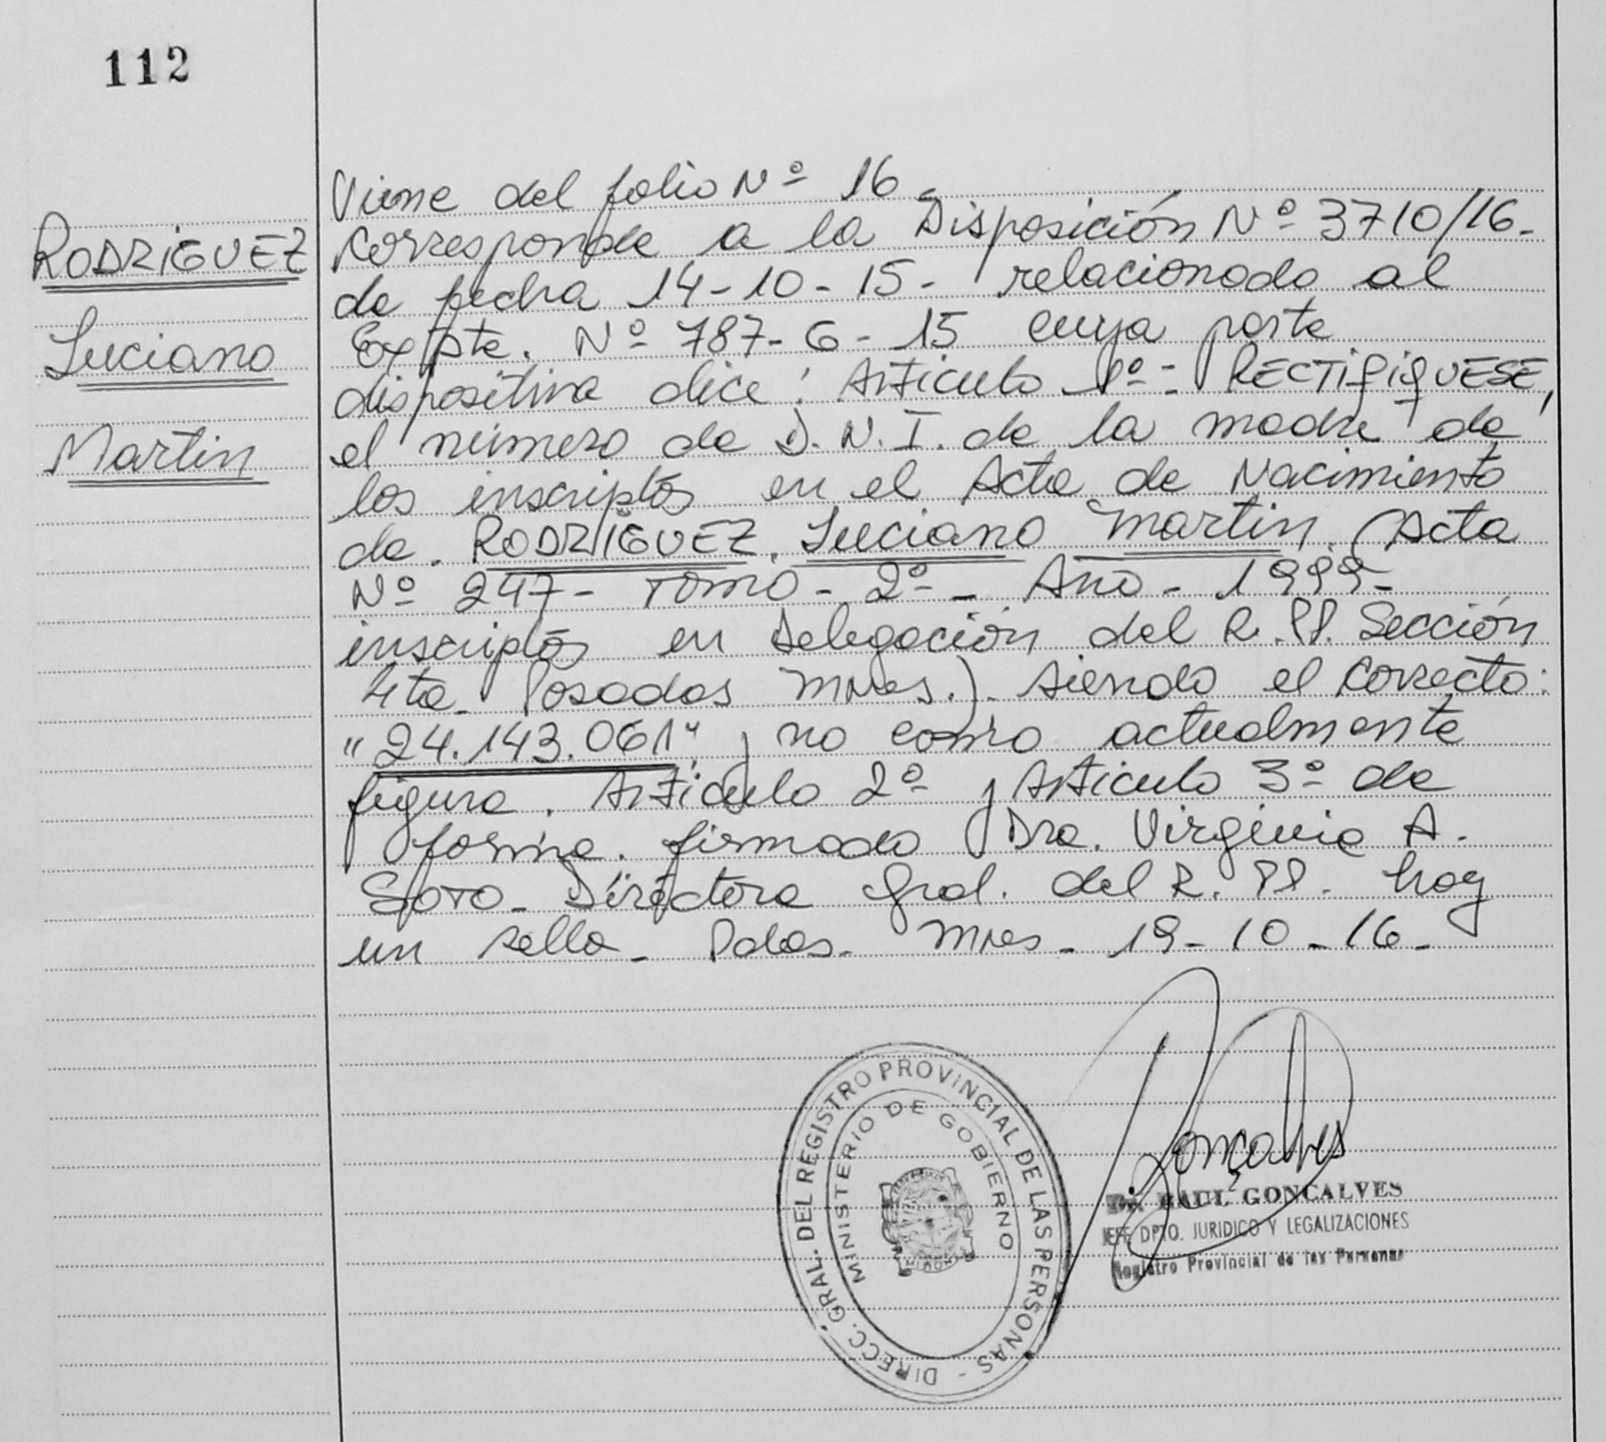 112
RODRIGUEZ
Luciano
Martin
Viene del folio Nº 16.
Corresponde a la Disposición Nº 3710/16-
de fecha 14-10-15- relacionado al
Expte. Nº 787-G-15 cuya parte
dispositiva dice: Artículo 1º-: RECTIFIQUESE,
el número de D.N.I. de la madre de
los inscriptos en el Acta de Nacimiento
de. RODRIGUEZ, Luciano Martin. (Acta
Nº 247- Tomo- 2º- Año- 1999-
inscriptos en Delegación del R.PP. Sección
4ta- Posadas Mnes.). siendo el correcto:
"24.143.061", no como actualmente
figura. Artículo 2º y Artículo 3º de
forma. firmado Dra. Virginia A.
Soto- Directora Gral. del R.PP. hay
un sello- Pdas- Mnes- 19-10-16-
DIRECC. GRAL. DEL REGISTRO PROVINCIAL DE LAS PERSONAS -
MINISTERIO DE GOBIERNO
Gonçalves
Dr. RAUL GONCALVES
JEFE DPTO. JURIDICO Y LEGALIZACIONES
Registro Provincial de las Personas